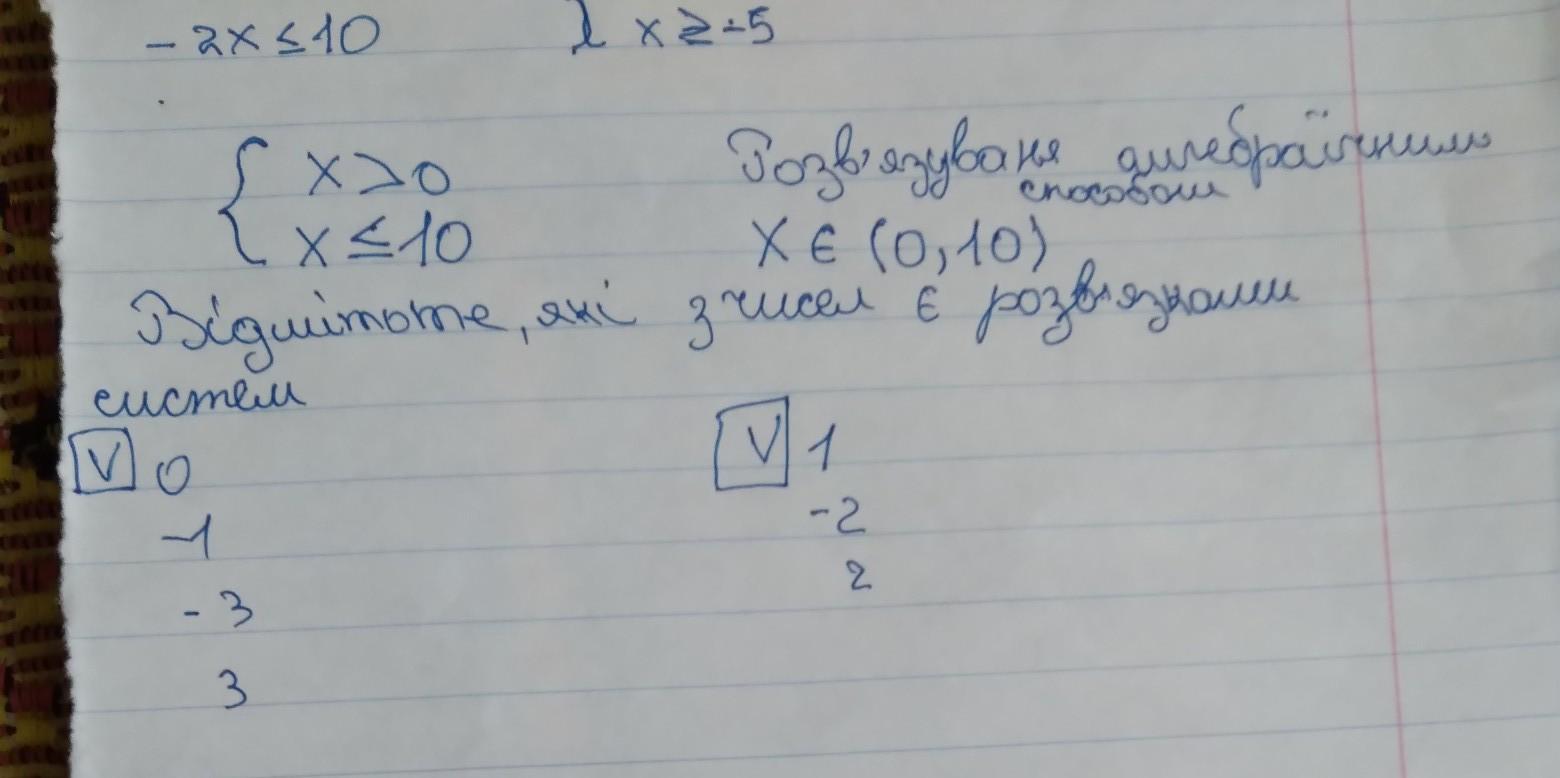 -2x≤10 { x≥-5
{ x>0
x≤10
Розв'язуваня алгебраїчним
способом
x є (0,10)
Відмітьте, які з чисел є розв'язками
систем
V 0
-1
-3
3
V 1
-2
2